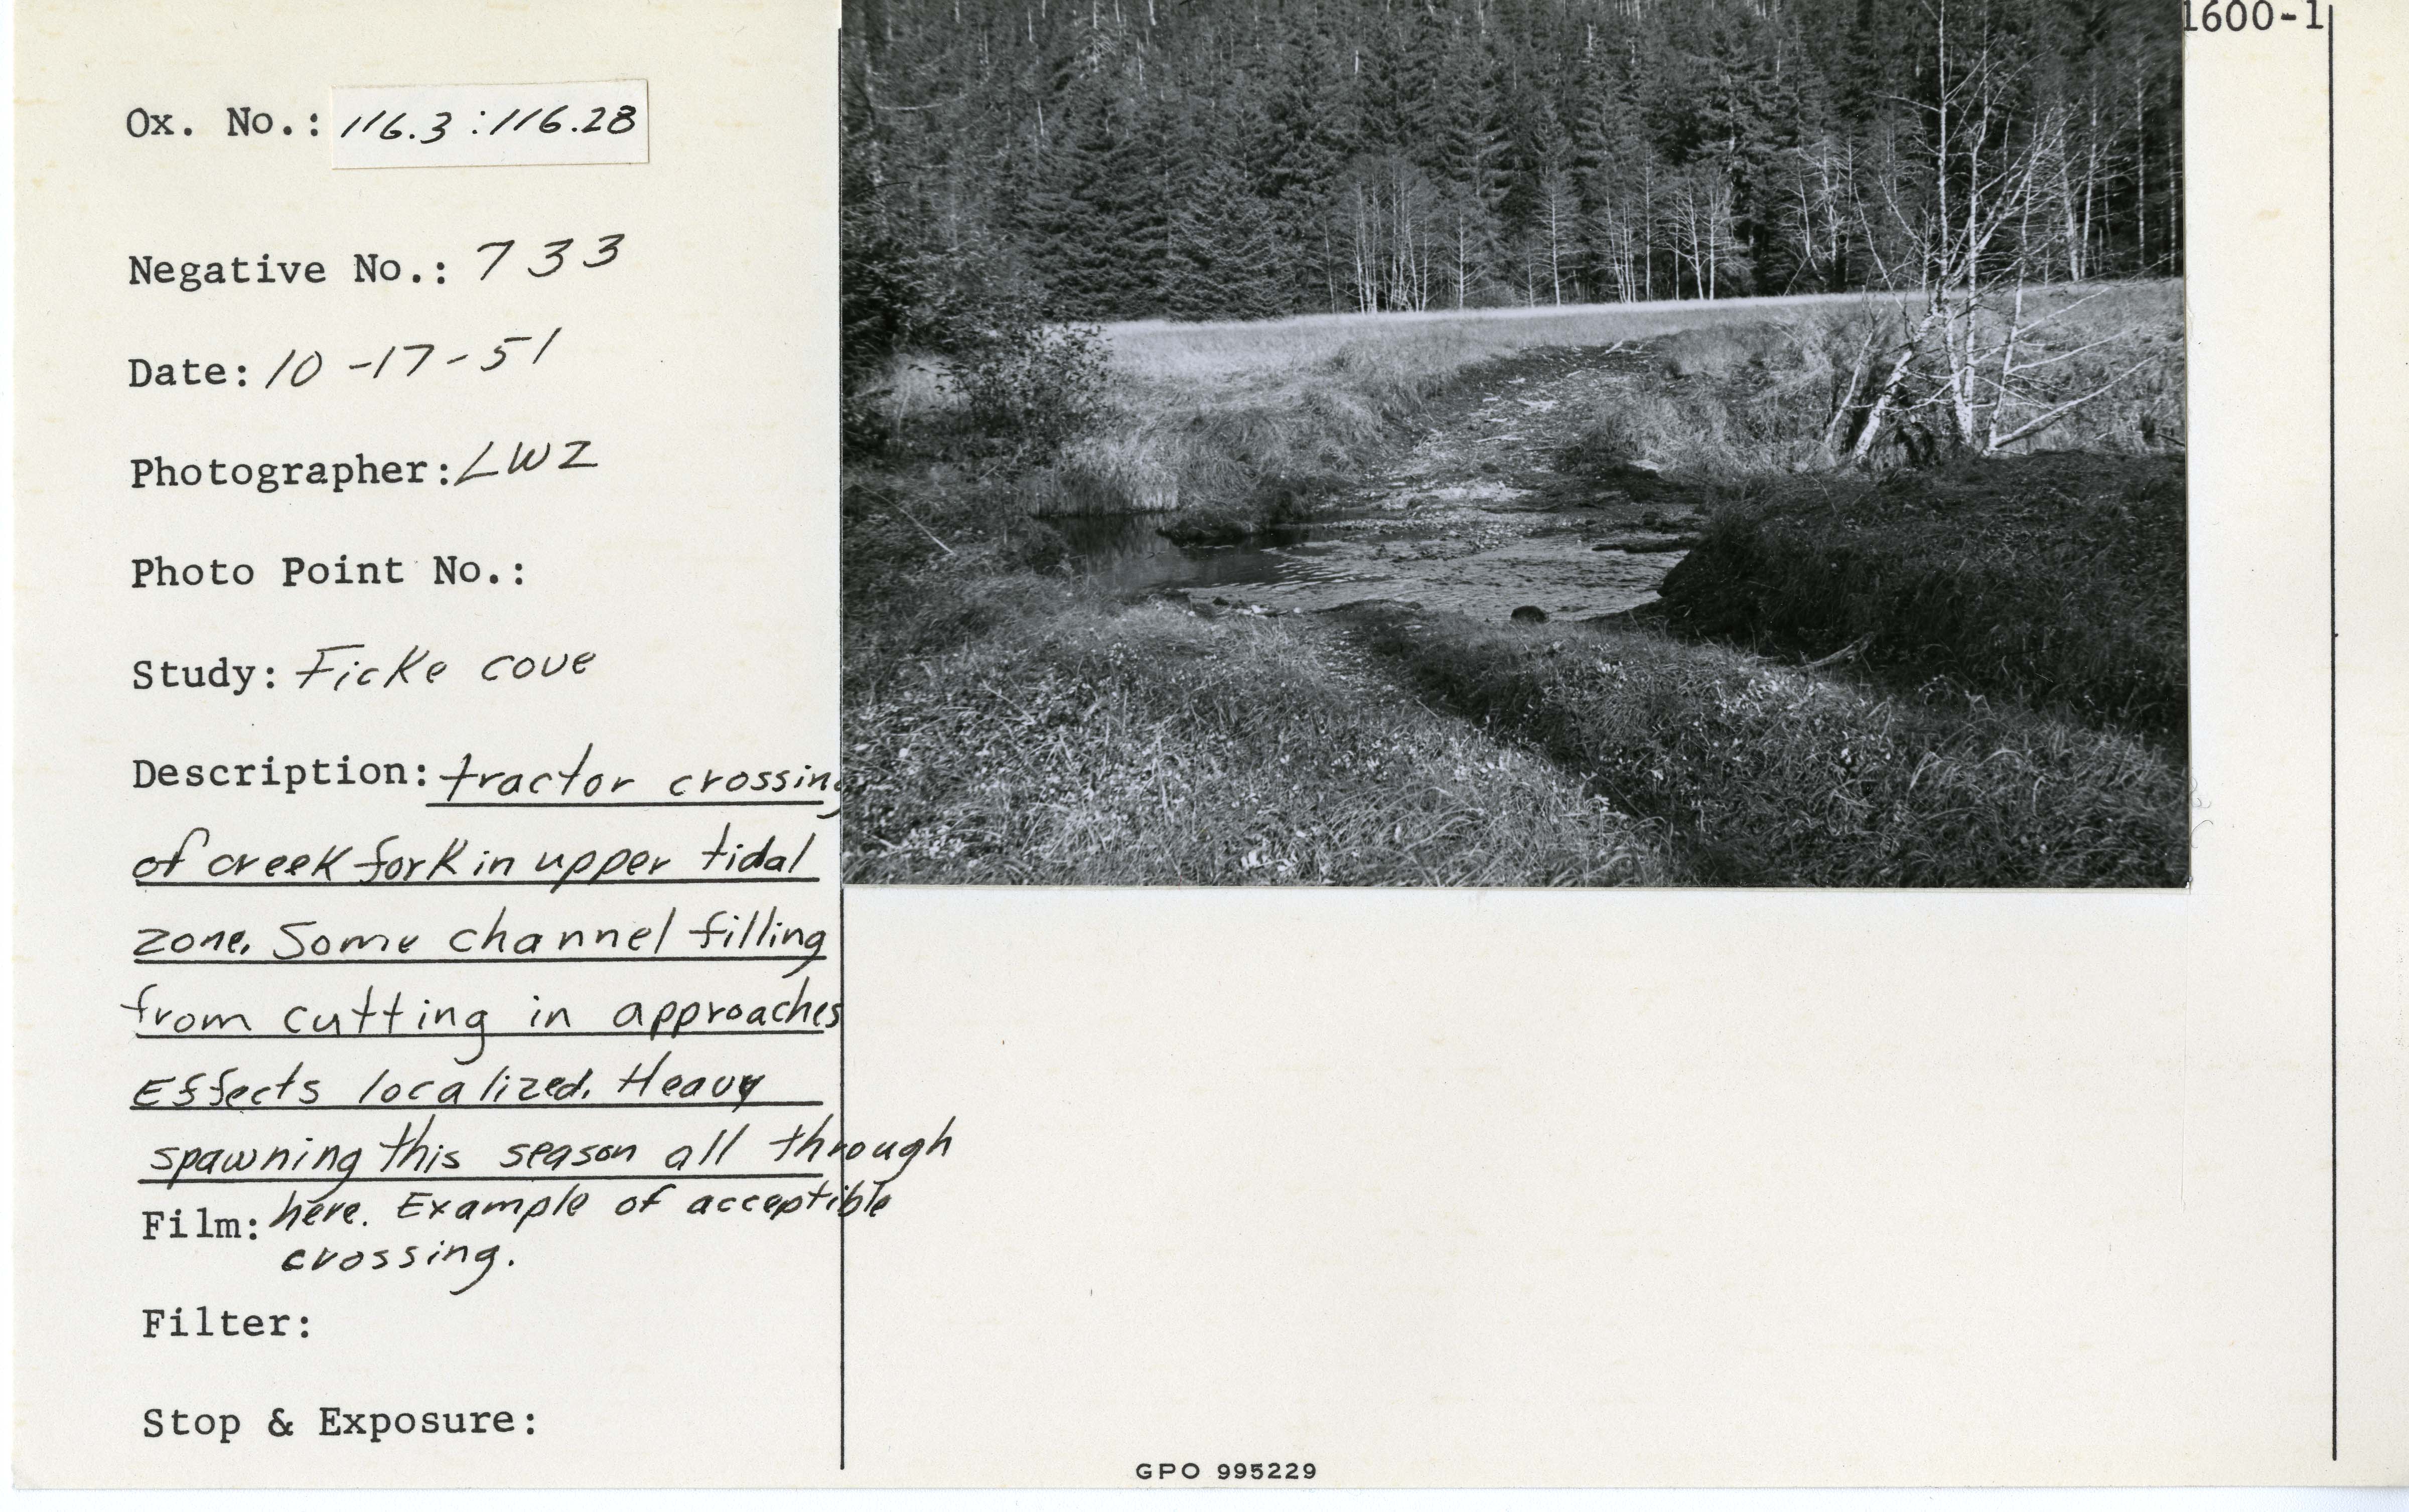 1600-1
Ox. No.: 116.3:116.28
Negative No.: 733
Date: 10-17-51
Photographer: LWZ
Photo Point No.:
Study: Ficke cove
Description: tractor crossing
of creek fork in upper tidal
zone. Some channel filling
from cutting in approaches
Effects localized. Heavy
spawning this season all through
Film: here. Example of acceptible
crossing.
Filter:
Stop & Exposure:
GPO 995229